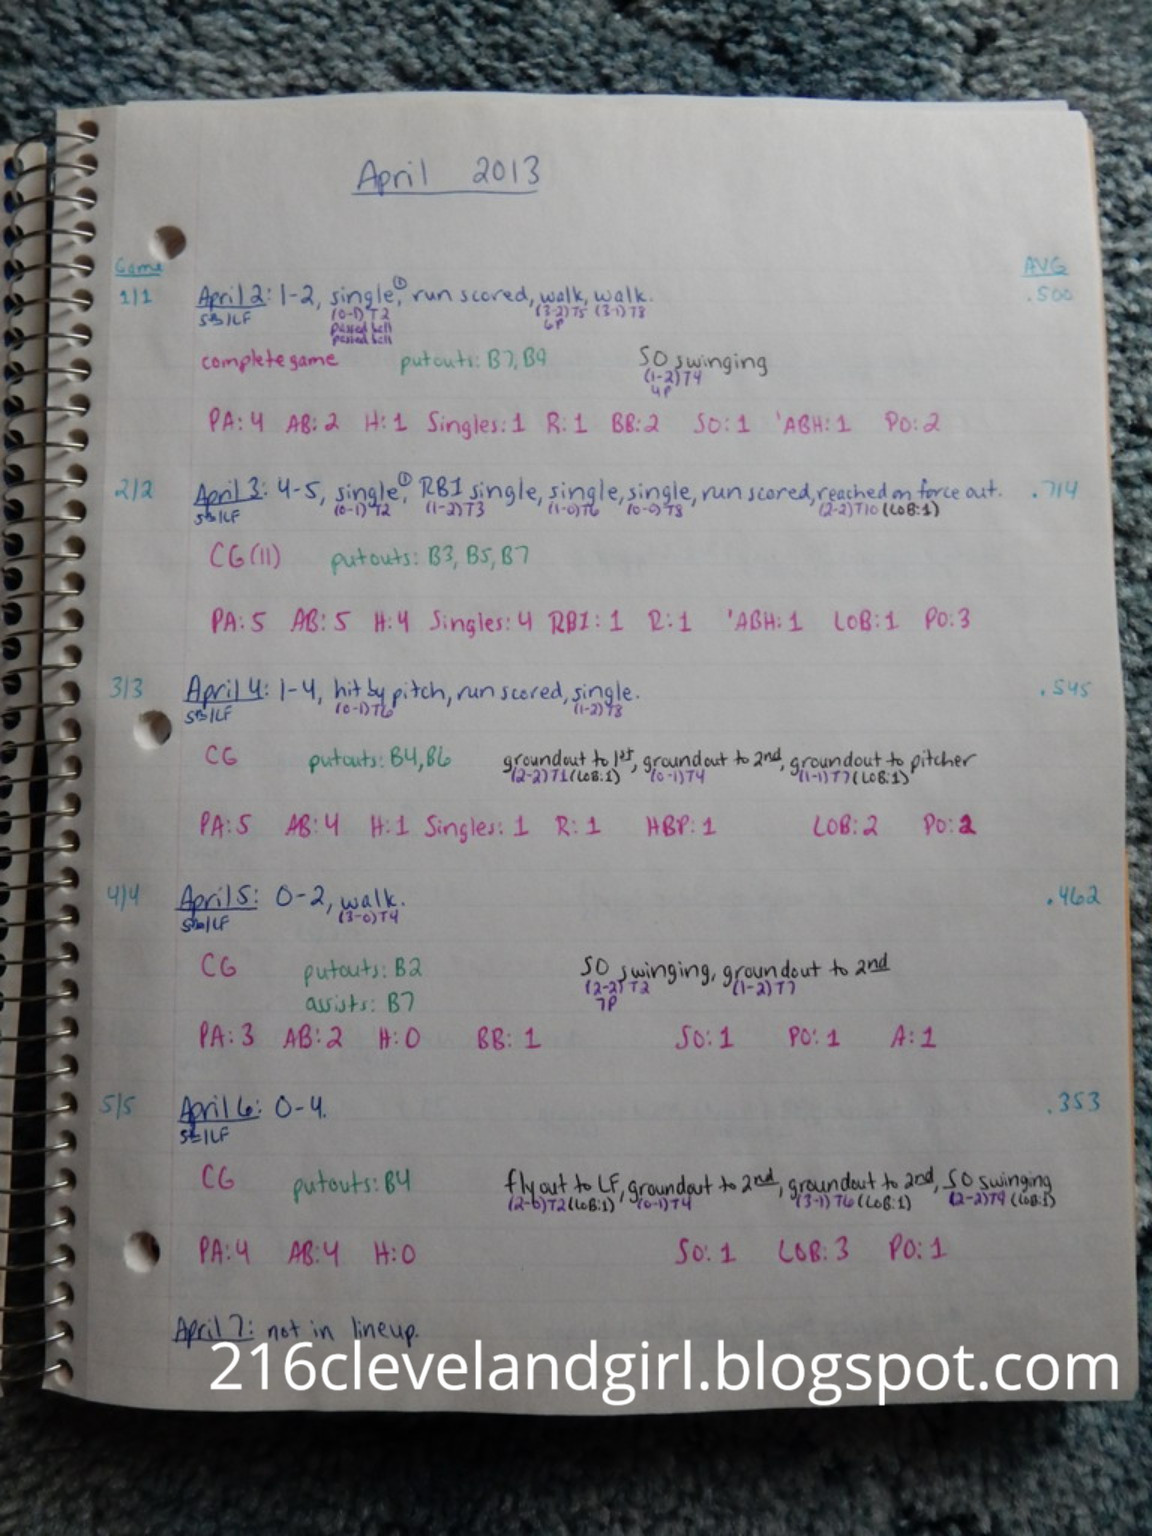 April 2013
Game AVG
1/1 April 2: 1-2, single, ① run scored, walk, walk. .500
5th/LF (0-1) T2 (3-2) T5 (3-1) T8
passed ball 6P
passed ball
complete game putouts: B7, B9 SO swinging
(1-2) T4
4P
PA: 4 AB: 2 H: 1 Singles: 1 R: 1 BB: 2 SO: 1 'ABH: 1 PO: 2
2/2 April 3: 4-5, single, ① RBI single, single, single, run scored, reached on force out. .714
5th/LF (0-1) T2 (1-2) T3 (1-0) T6 (0-0) T8 (2-2) T10 (LOB:1)
CG (11) putouts: B3, B5, B7
PA: 5 AB: 5 H: 4 Singles: 4 RBI: 1 R: 1 'ABH: 1 LOB: 1 PO: 3
3/3 April 4: 1-4, hit by pitch, run scored, single. .545
5th/LF (0-1) T6 (1-2) T8
CG putouts: B4, B6 groundout to 1st, groundout to 2nd, groundout to pitcher
(2-2) T1 (LOB:1) (0-1) T4 (1-1) T7 (LOB:1)
PA: 5 AB: 4 H: 1 Singles: 1 R: 1 HBP: 1 LOB: 2 PO: 2
4/4 April 5: 0-2, walk. .462
5th/LF (3-0) T4
CG putouts: B2 SO swinging, groundout to 2nd
(2-2) T2 (1-2) T7
assists: B7 7P
PA: 3 AB: 2 H: 0 BB: 1 SO: 1 PO: 1 A: 1
5/5 April 6: 0-4. .353
5th/LF
CG putouts: B4 fly out to LF, groundout to 2nd, groundout to 2nd, SO swinging
(2-0) T2 (LOB:1) (0-1) T4 (3-1) T6 (LOB:1) (2-2) T9 (LOB:1)
PA: 4 AB: 4 H: 0 SO: 1 LOB: 3 PO: 1
April 7: not in lineup.
216clevelandgirl.blogspot.com